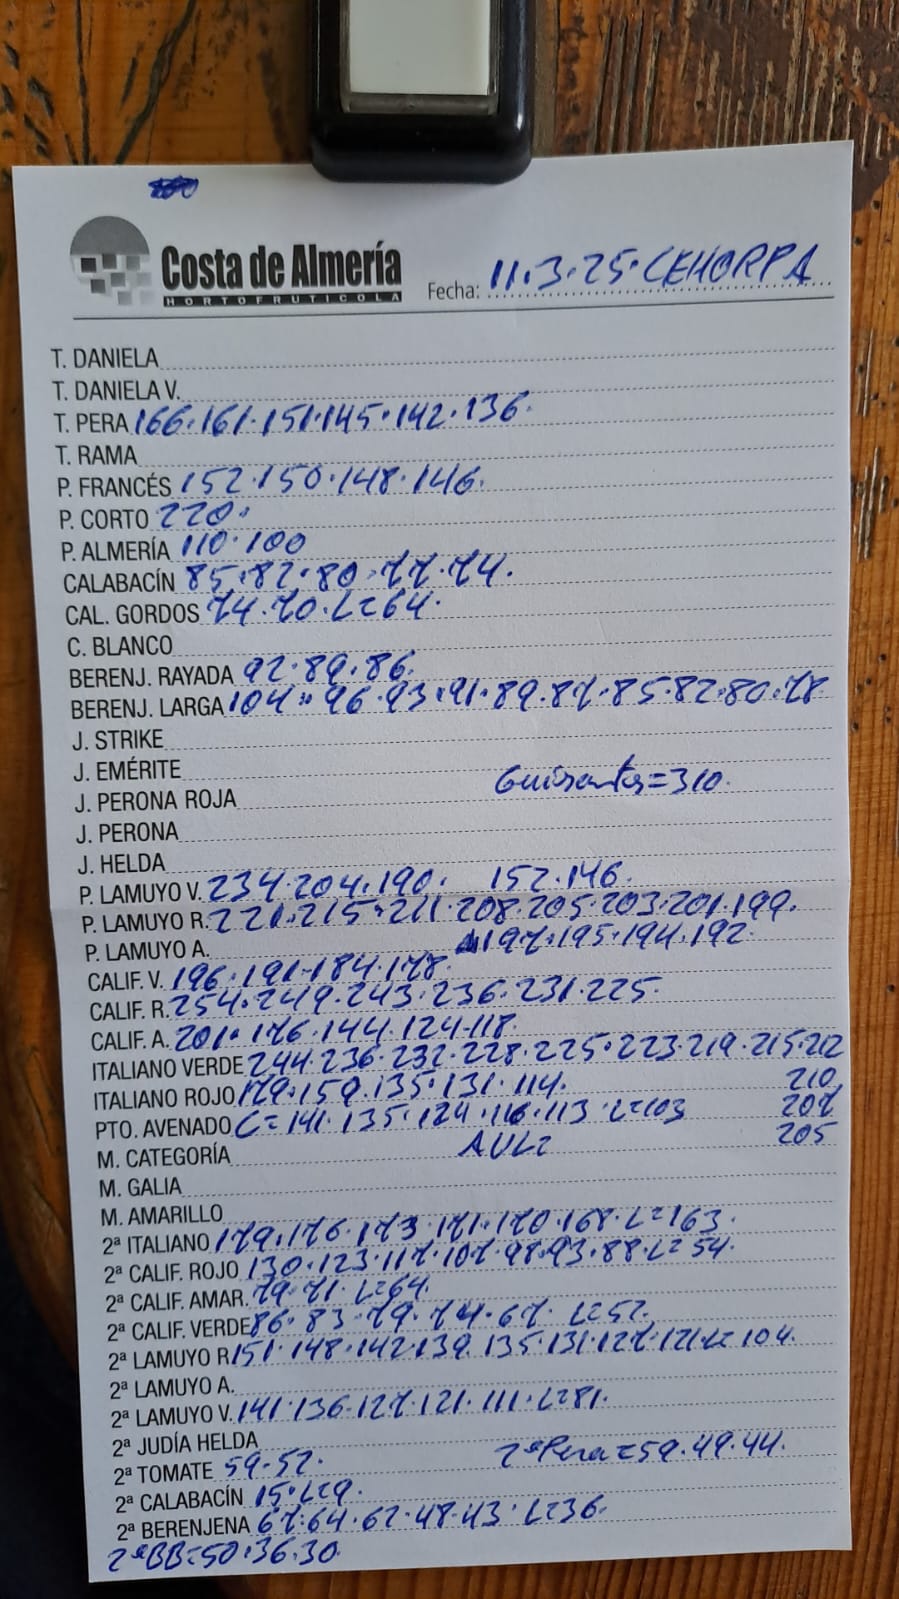 Costa de Almería
HORTOFRUTICOLA
Fecha: 11.3.25. CEHORPA
T. DANIELA
T. DANIELA V.
T. PERA 166.161.151.145.142.136.
T. RAMA
P. FRANCÉS 152.150.148.146.
P. CORTO 220.
P. ALMERÍA 110.100
CALABACÍN 85.82.80.77.74.
CAL. GORDOS 74.70.L=64.
C. BLANCO
BERENJ. RAYADA 92.89.86.
BERENJ. LARGA 104.96.93.91.89.87.85.82.80.78
J. STRIKE
J. EMÉRITE
Guisantes=310.
J. PERONA ROJA
J. PERONA
J. HELDA
P. LAMUYO V. 234.204.190. 152.146.
P. LAMUYO R. 221.215.211.208.205.203.201.199.
P. LAMUYO A. 197.195.194.192
CALIF. V. 196.191.184.178.
CALIF. R. 254.249.243.236.231.225.
CALIF. A. 201.176.144.124.118.
ITALIANO VERDE 244.236.232.228.225.223.219.215.212
ITALIANO ROJO 179.159.135.131.114. 210
PTO. AVENADO C=141.135.124.116.113.L=103 207
M. CATEGORÍA 205
M. GALIA
M. AMARILLO
2ª ITALIANO 179.176.173.171.170.168.L=163.
2ª CALIF. ROJO 130.123.117.107.98.93.88.L=54.
2ª CALIF. AMAR. 79.71.L=64.
2ª CALIF. VERDE 86.83.79.74.67. L=52.
2ª LAMUYO R 151.148.142.139.135.131.127.121.L=104.
2ª LAMUYO A.
2ª LAMUYO V. 141.136.127.121.111.L=81.
2ª JUDÍA HELDA
2ª Pera=59.49.44.
2ª TOMATE 59.52.
2ª CALABACÍN 15.L=9.
2ª BERENJENA 67.64.62.48.43.L=36.
2ª BB=50.36.30.